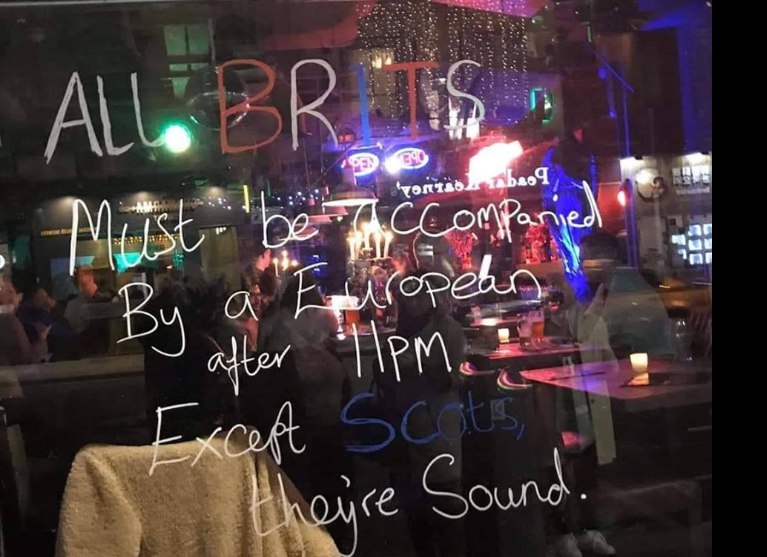 ALL BRITS
OPEN
OPEN
Peadar Kearney's
Must be accompanied
By a European
after 11PM.
Except Scots,
they're Sound.